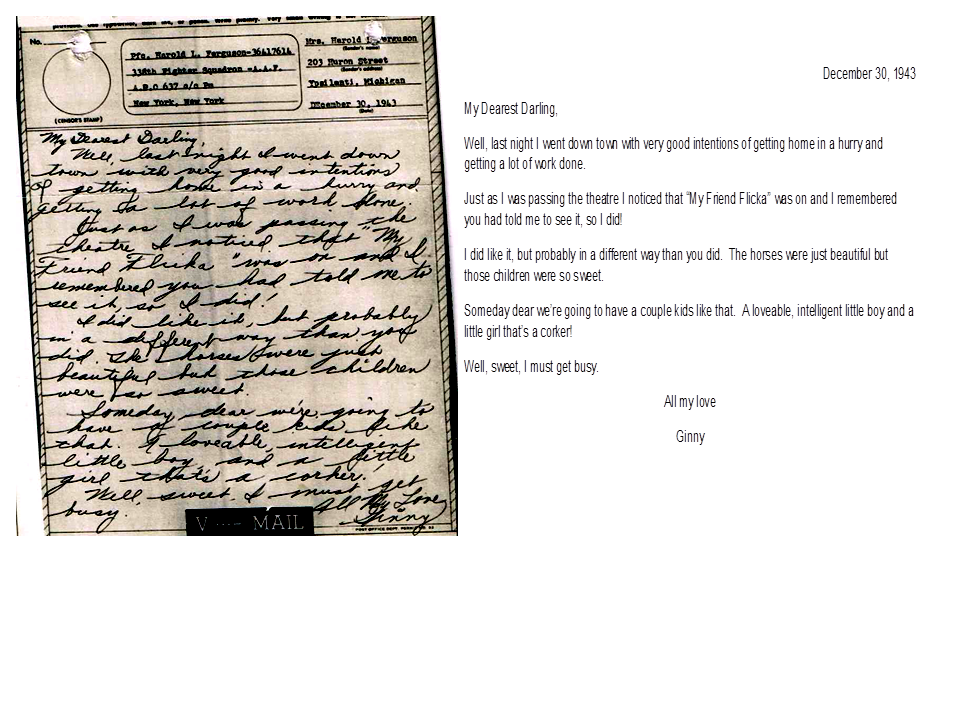 No.
(CENSOR'S STAMP)
Pfc. Harold L. Ferguson-36417614
338th Fighter Squadron -A.A.F.
A.P.O 637 c/o Pm
New York, New York
Mrs. Harold L. Ferguson
(Sender's name)
203 Huron Street
(Sender's address)
Ypsilanti, Michigan
DEcember 30, 1943
(Date)
My Dearest Darling,
Well, last night I went down
town with very good intentions
of getting home in a hurry and
getting a lot of work done.
Just as I was passing the
theatre I noticed that "My
Friend Flicka" was on and I
remembered you had told me to
see it, so I did!
I did like it, but probably
in a different way than you
did. The horses were just
beautiful but those children
were so sweet.
Someday, dear we're going to
have a couple kids like
that. A loveable, intelligent
little boy, and a little
girl that's a corker!
Well, sweet, I must get
busy.
All My Love
Ginny
V ···— MAIL
December 30, 1943
My Dearest Darling,
Well, last night I went down town with very good intentions of getting home in a hurry and
getting a lot of work done.
Just as I was passing the theatre I noticed that “My Friend Flicka” was on and I remembered
you had told me to see it, so I did!
I did like it, but probably in a different way than you did.  The horses were just beautiful but
those children were so sweet.
Someday dear we’re going to have a couple kids like that.  A loveable, intelligent little boy and a
little girl that’s a corker!
Well, sweet, I must get busy.
All my love
Ginny